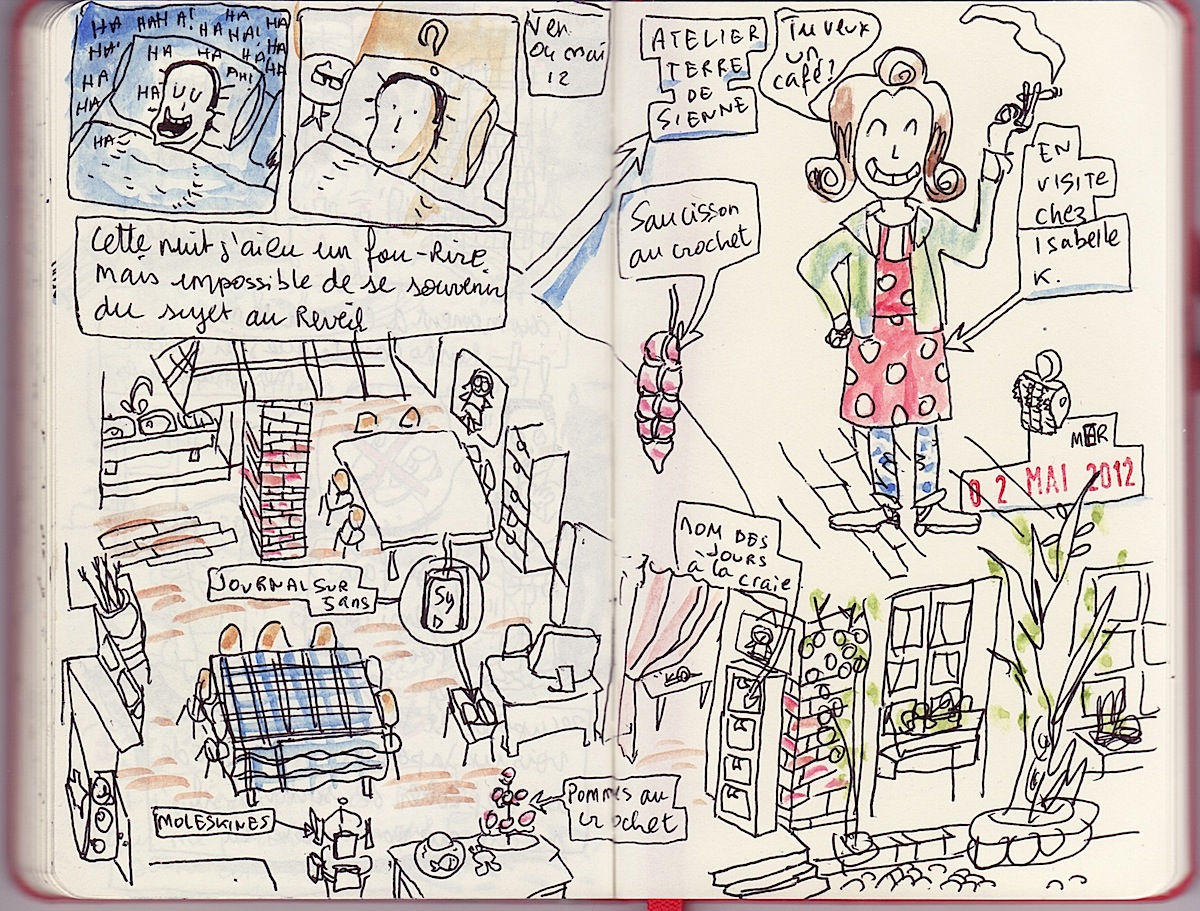 HA HAHA! HA
HA! HA HA!
HA HA HA HA HA
HA AH!
HA HA
HA
?
Ven
04 mai
12
Cette nuit j'ai eu un fou-Rire
mais impossible de se souvenir
du sujet au Reveil
JOURNAL SUR
5ans
MOLESKINES
POMMES au
crochet
ATELIER
TERRE
DE
SIENNE
Tu veux
un
café?
EN
VISITE
chez
Isabelle
K.
Saucisson
au crochet
MER
02 MAI 2012
NOM DES
JOURS
à la craie